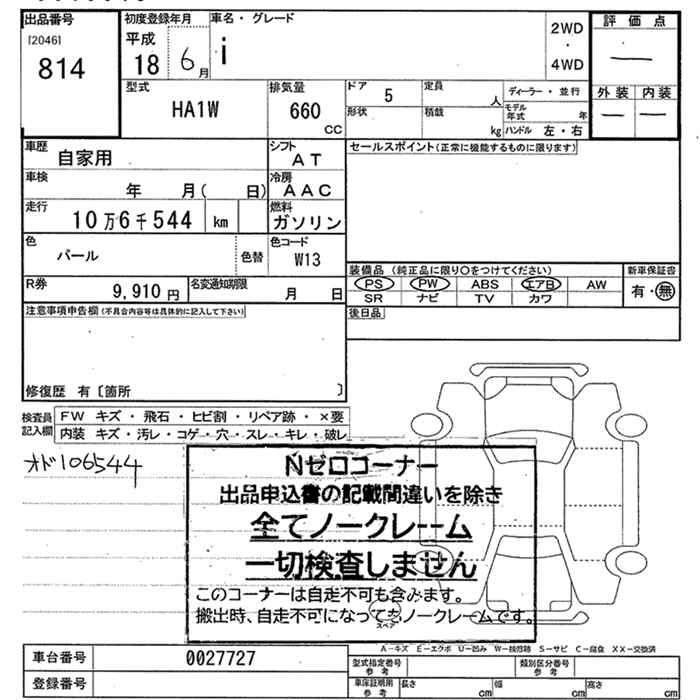 出品番号
[2046]
814
初度登録年月
平成
18 6月
車名・グレード
i
2WD
・
4WD
評価点
―
外装 内装
― ―
型式
HA1W
排気量
660
CC
ドア
5
定員
人
形状
積載
kg
ディーラー・並行
モデル
年式 年
ハンドル 左・右
車歴
自家用
シフト
AT
車検
年 月( 日)
冷房
AAC
走行
10万6千544 km
燃料
ガソリン
色
パール
色替
色コード
W13
R券
9,910 円
名変通知期限
月 日
セールスポイント(正常に機能するものに限ります)
装備品 (純正品に限り○をつけてください)
新車保証書
PS PW ABS エアB AW
SR ナビ TV カワ
有・無
後日品
注意事項申告欄(不具合内容等は具体的に記入して下さい)
修復歴 有〔箇所 〕
検査員
記入欄
FW キズ・飛石・ヒビ割・リペア跡・×要
内装 キズ・汚レ・コゲ・穴・スレ・キレ・破レ
オド106544
Nゼロコーナー
出品申込書の記載間違いを除き
全てノークレーム
一切検査しません
このコーナーは自走不可も含みます。
搬出時、自走不可になってもノークレームです。
スペア
A－キズ E－エクボ U－凹み W－板跡 S－サビ C－腐食 XX－交換済
車台番号
0027727
登録番号
型式指定番号
参考
類別区分番号
参考
車保証明用
参考
長さ
cm
幅
cm
高さ
cm